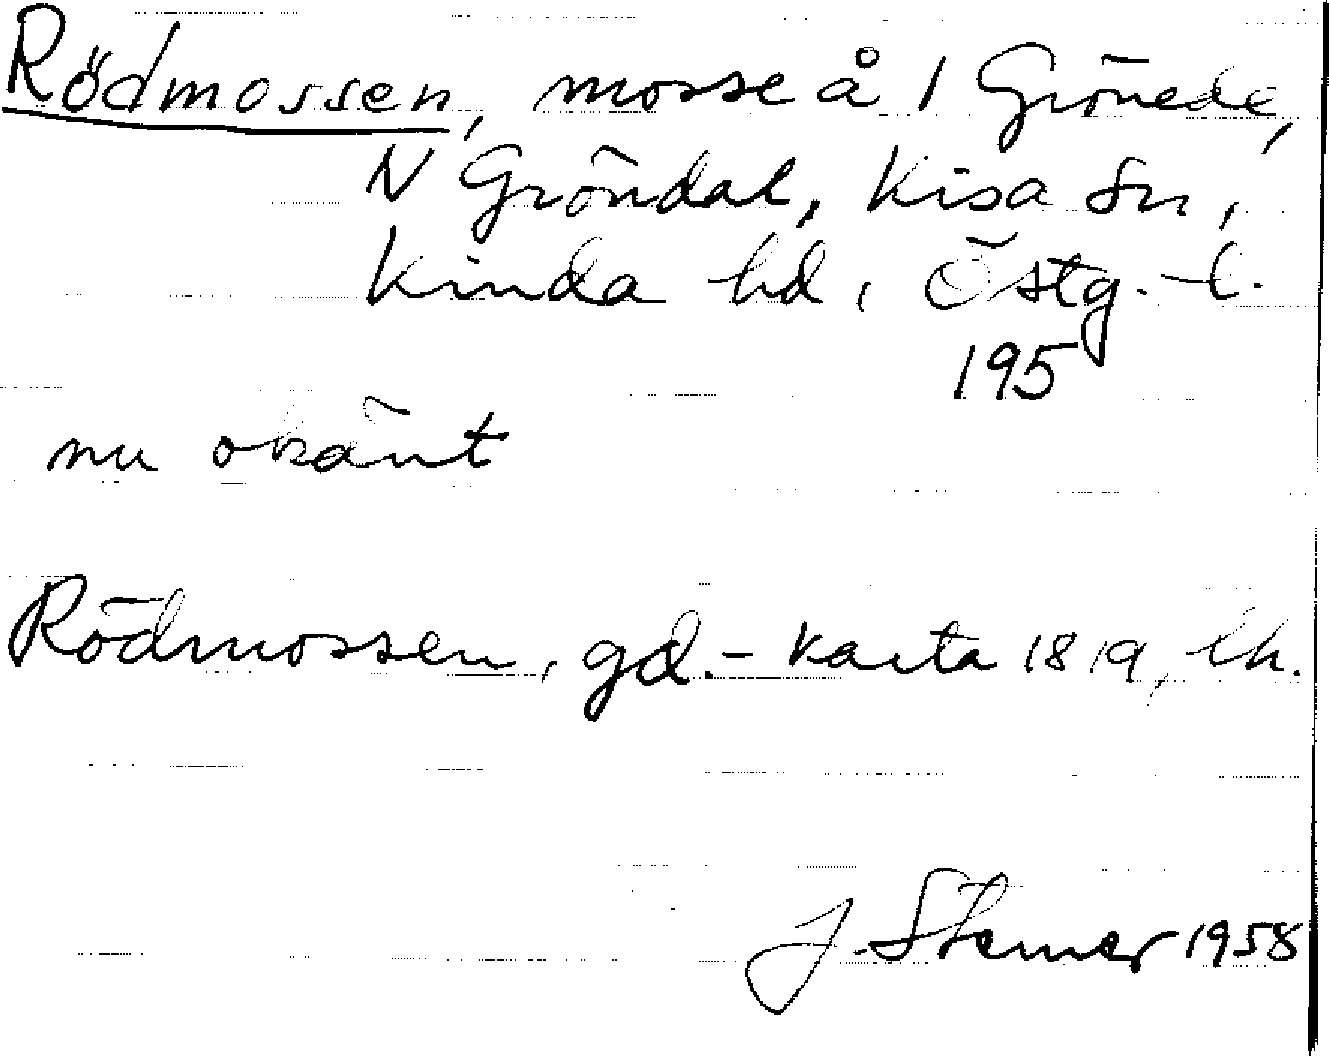 Rödmossen, mosse å 1 Grönede,
N Gröndal, Kisa sn,
Kinda hd, Östg.-l.
195
nu okänt
Rödmossen, gd.- karta 1819, lk.
J. Stemer 1958